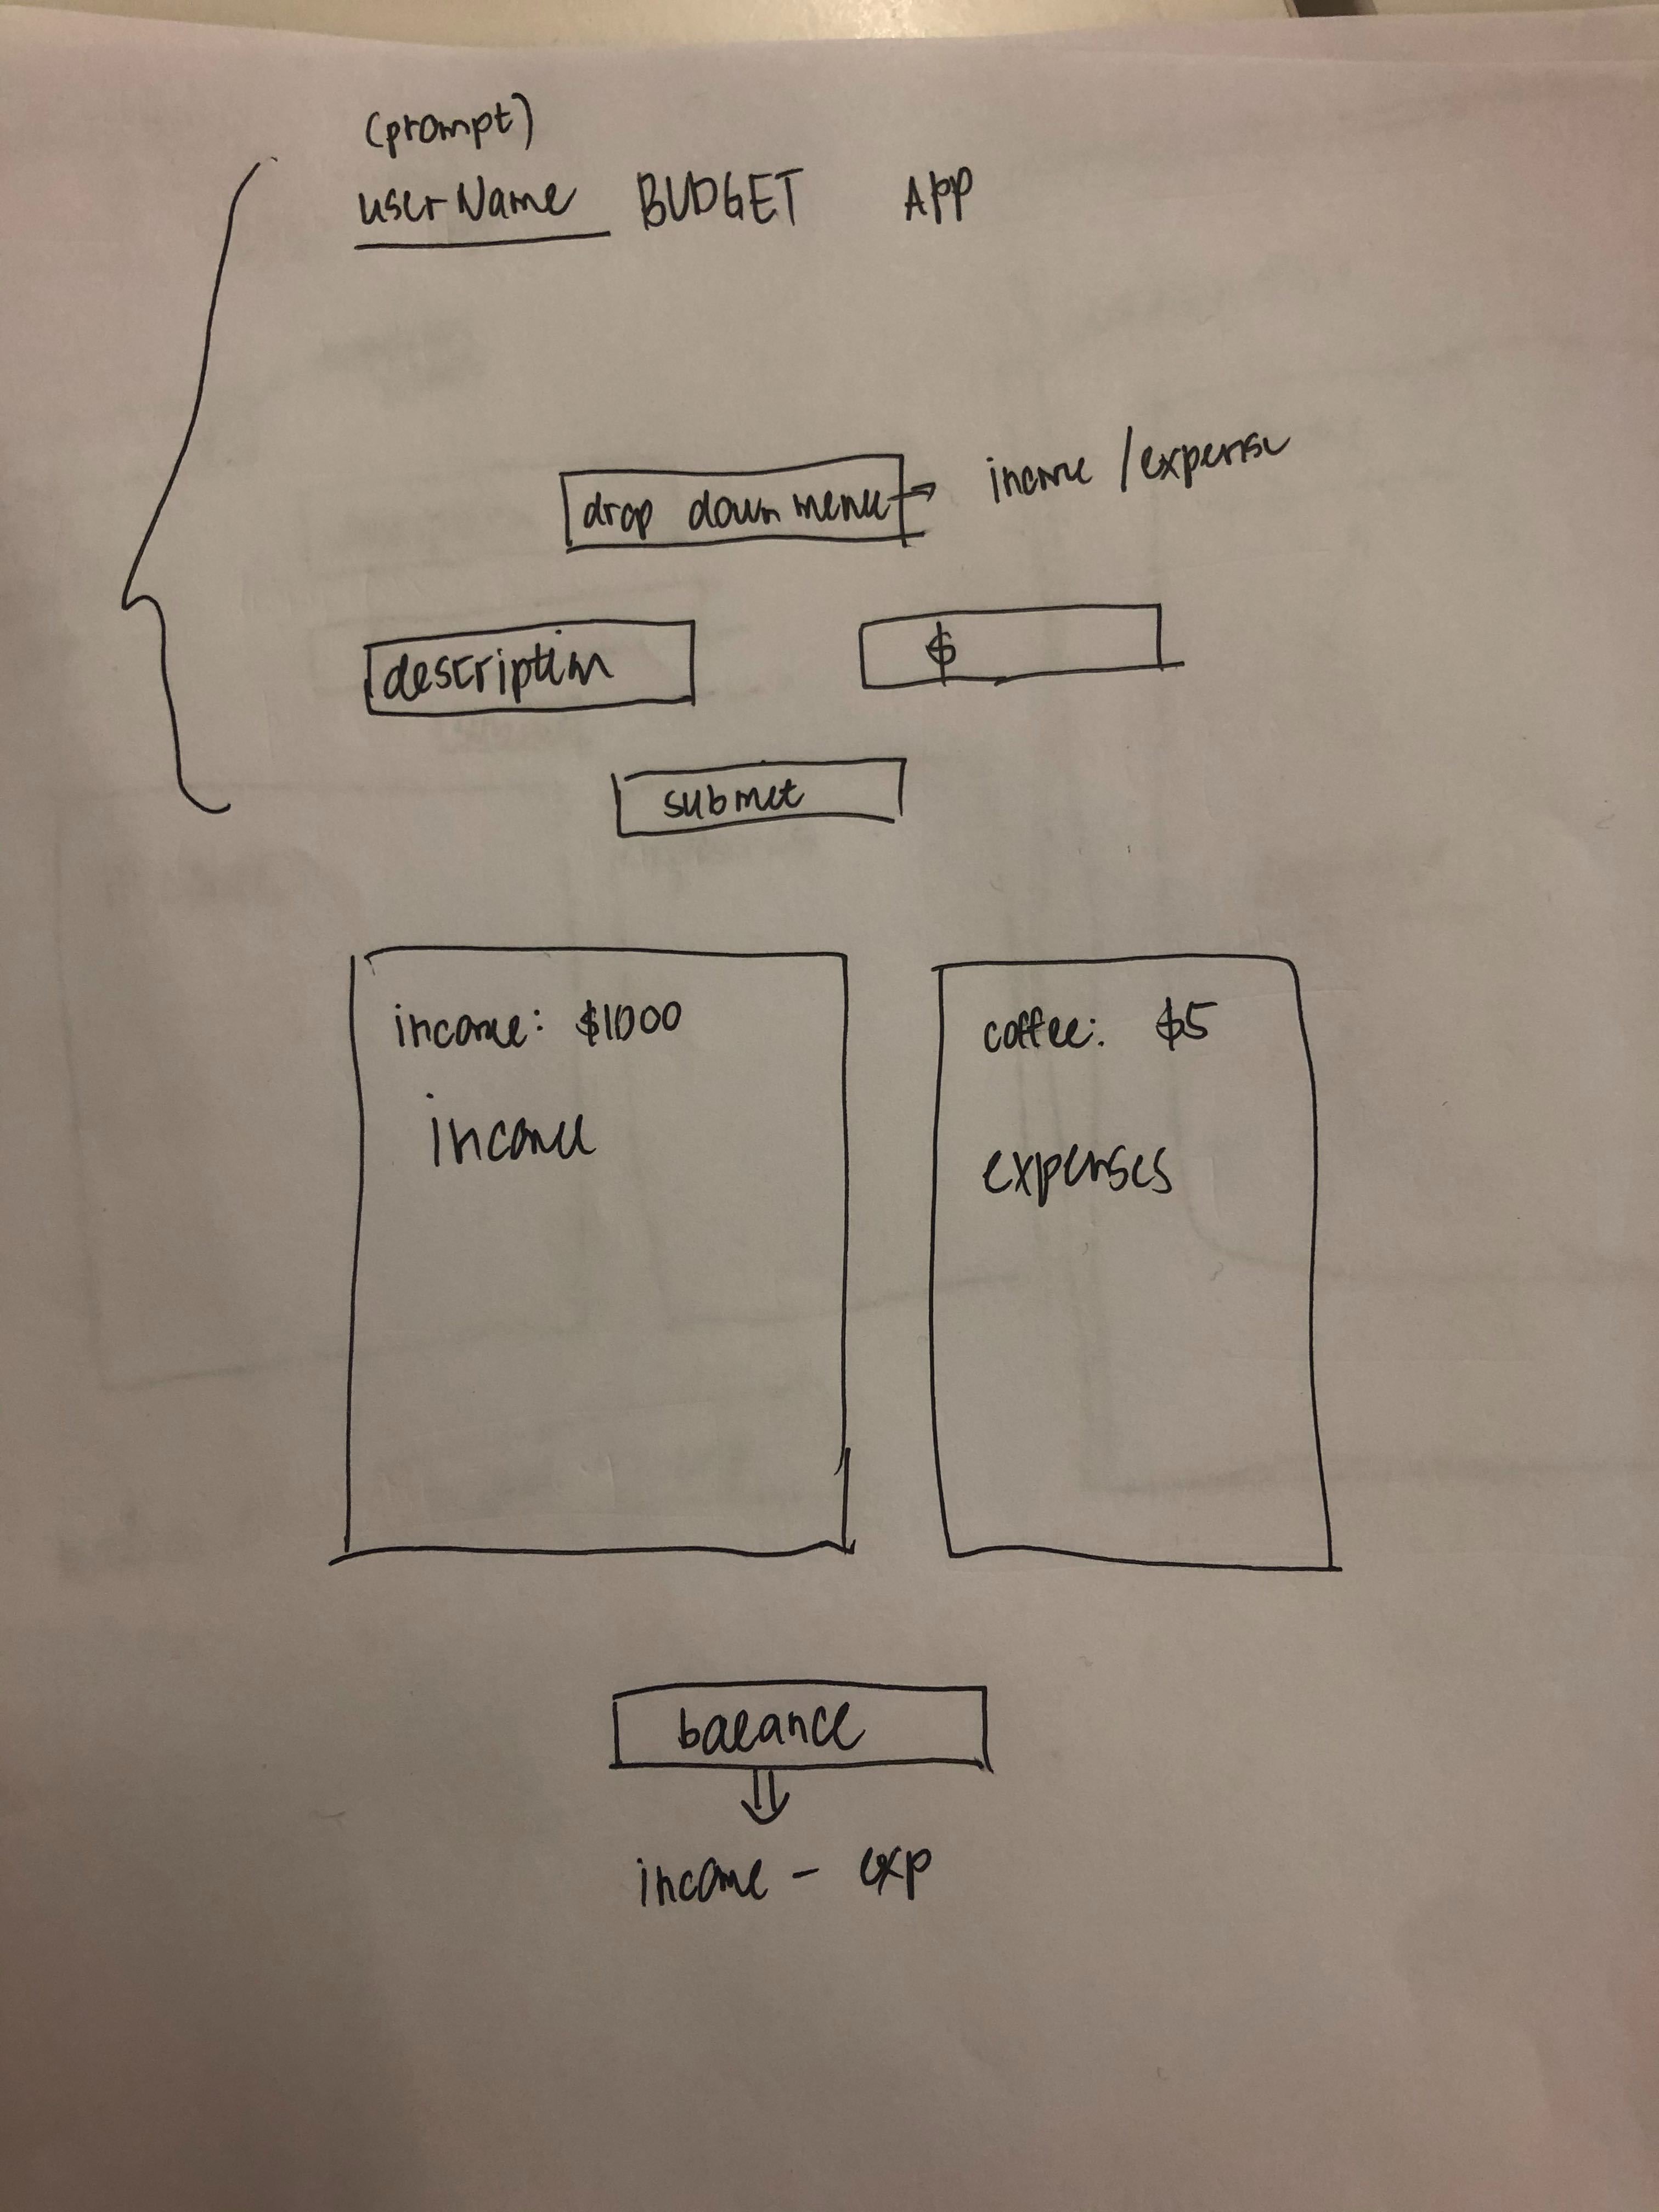 (prompt)
userName BUDGET APP
drop down menu → income / expense
description $
submit
income: $1000 coffee: $5
income expenses
balance
income - exp